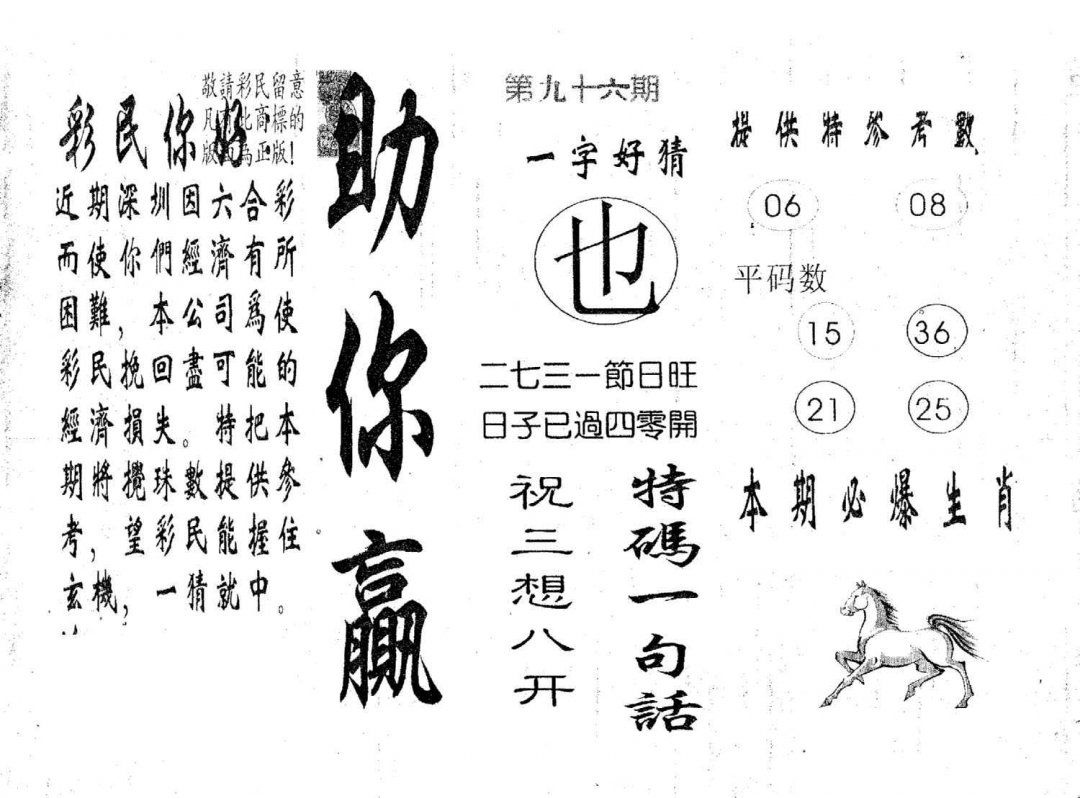 敬請彩民留意
凡 此商標的
版 為正版!
彩民你好
近期深圳因六合彩
而使你們經濟有所
困難，本公司爲使
彩民挽回盡可能的
經濟損失。特把本
期將攪珠數提供參
考，望彩民能握住
玄機，一猜就中。
助你贏
第九十六期
一字好猜
也
二七三一節日旺
日子已過四零開
特碼一句話
祝三想八开
提供特參考數
06 08
平码数
15 36
21 25
本期必爆生肖